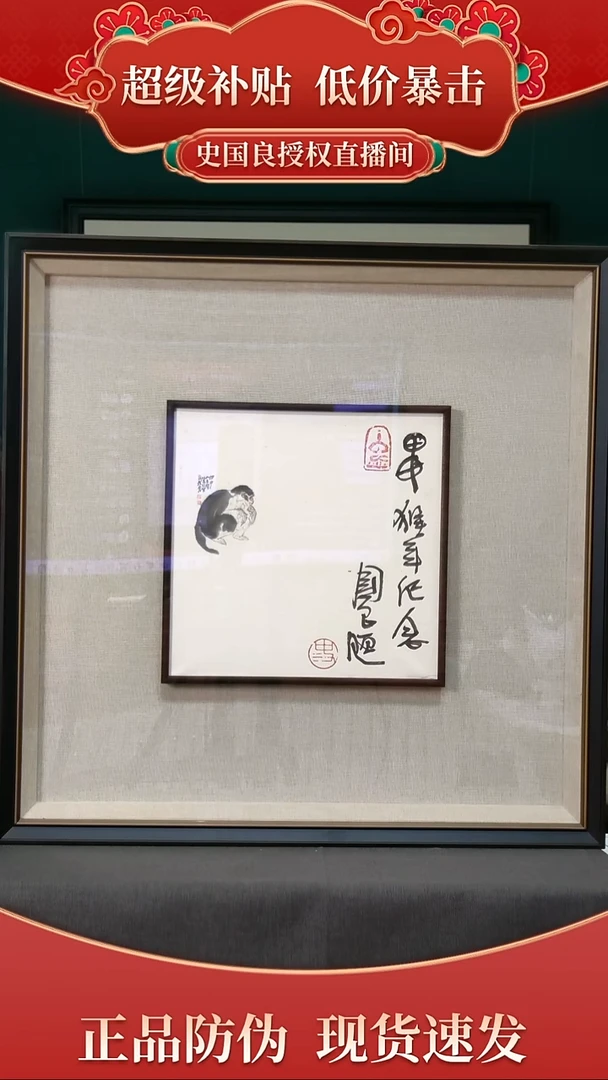 超级补贴 低价暴击
史国良授权直播间
甲
猴年纪念
国良题
正品防伪 现货速发